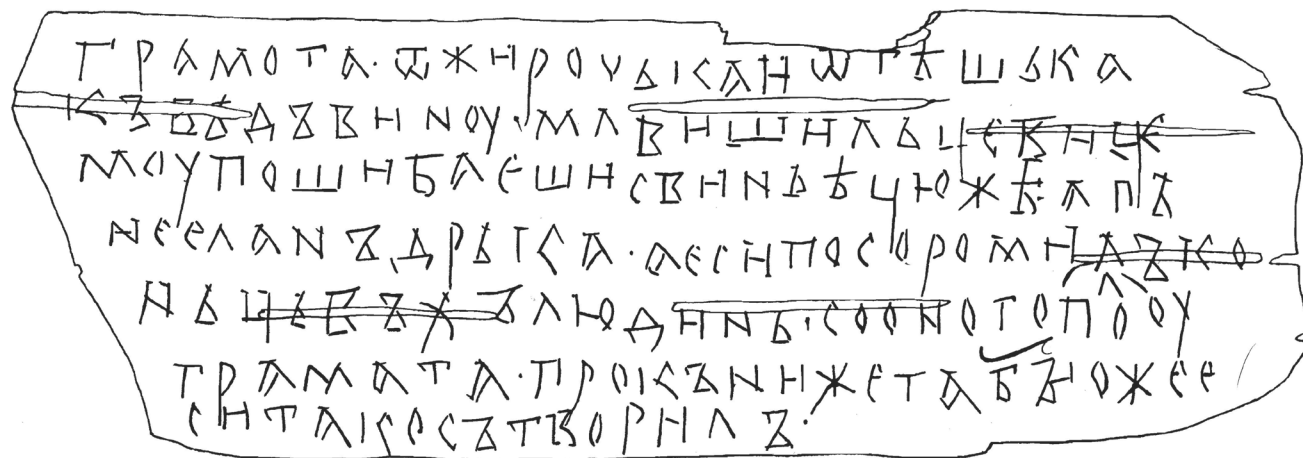 грамота·ѿжироцькаиѿтѣшька
къвъдъвиноу·млвишильцевице
моупошибаешисвиньѣцюжѣапъ
несланъдрька·аесипосоромилъко
ньцьвъхълюдинь·сооногополоу
грамата·прокънижетабыожее
ситакосътворилъ·